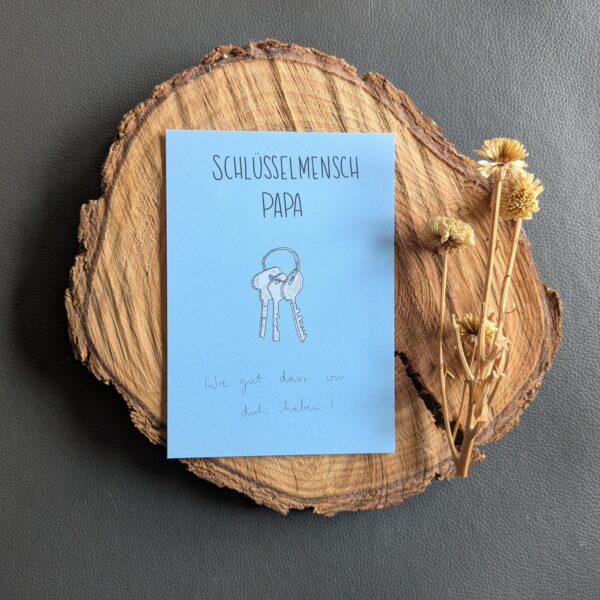 SCHLÜSSELMENSCH
PAPA
Wie gut, dass wir
dich haben!